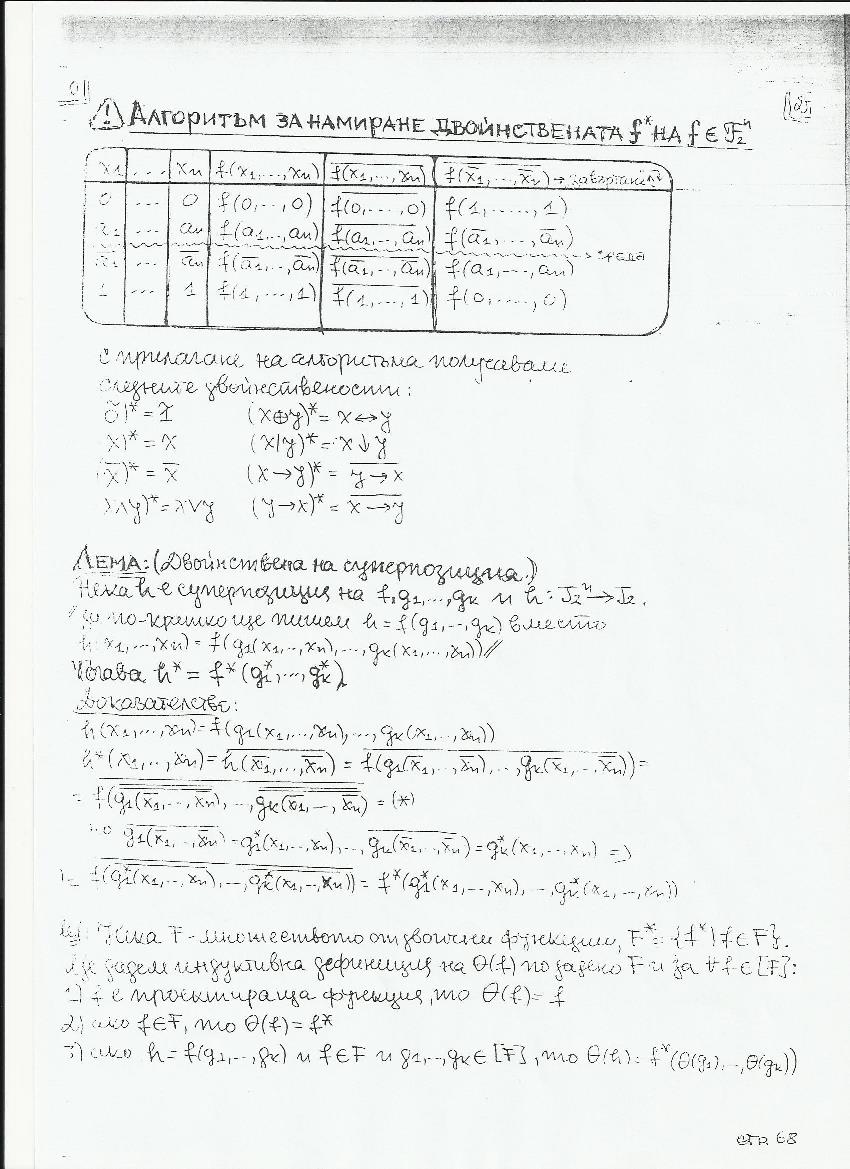 ! АЛГОРИТЪМ ЗА НАМИРАНЕ ДВОЙНСТВЕНАТА f* НА f ∈ F₂ⁿ
x₁ ... xₙ f(x₁,...,xₙ) f̅(̅x̅₁̅,̅.̅.̅.̅,̅x̅ₙ̅)̅ f̅(̅x̅₁,...,x̅ₙ)̅ → завъртане ↑↓
0 ... 0 f(0,..,0) f̅(̅0̅,̅.̅.̅.̅,̅0̅)̅ f(1,.....,1)
a₁ ... aₙ f(a₁..,aₙ) f̅(̅a̅₁̅,̅.̅.̅,̅a̅ₙ̅)̅ f(a̅₁,...,a̅ₙ)
a̅₁ ... a̅ₙ f(a̅₁,..,a̅ₙ) f̅(̅a̅₁,..,a̅ₙ)̅ f(a₁,...,aₙ) → среда
1 ... 1 f(1,...,1) f̅(̅1̅,̅.̅.̅.̅,̅1̅)̅ f(0,.....,0)
С прилагане на алгоритъма получаваме
следните двойнствености:
0̃)* = 1̃ (x⊕y)* = x↔y
x)* = x (x|y)* = x↓y
(x̅)* = x̅ (x→y)* = y̅→̅x̅
x∧y)* = x∨y (y→x)* = x̅→̅y̅
ЛЕМА: (Двойнствена на суперпозиция.)
Нека h е суперпозиция на f,g₁,...,gₖ и h: J₂ⁿ→J₂.
// по-кратко ще пишем h = f(g₁,..,gₖ) вместо
h(x₁,...,xₙ) = f(g₁(x₁,..,xₙ),...,gₖ(x₁,...,xₙ)) //
Тогава h* = f*(g₁*,...,gₖ*)
Доказателство:
h(x₁,...,xₙ) = f(g₁(x₁,..,xₙ),...,gₖ(x₁,...,xₙ))
h*(x₁,...,xₙ) = h̅(̅x̅₁,...,x̅ₙ)̅ = f̅(̅g̅₁̅(̅x̅₁,..,x̅ₙ),..,gₖ(x̅₁,..,x̅ₙ))̅ =
= f̅(̅g̿₁(x̅₁,..,x̅ₙ),..,g̿ₖ(x̅₁,..,x̅ₙ))̅ = (*)
но g̅₁(x̅₁,..,x̅ₙ) = g₁*(x₁,..,xₙ),..,g̅ₖ(x̅₁,..,x̅ₙ) = gₖ*(x₁,..,xₙ) =>
= f̅(g̅₁*(x₁,..,xₙ),..,g̅ₖ*(x₁,..,xₙ)) = f*(g₁*(x₁,..,xₙ),..,gₖ*(x₁,..,xₙ))
Нека F - множеството от двоични функции, F* = {f* | f∈F}.
Ще дадем индуктивна дефиниция на Θ(f) по дадено F и за ∀f∈[F]:
1) f е проектираща функция, то Θ(f) = f
2) ако f∈F, то Θ(f) = f*
3) ако h = f(g₁,..,gₖ) и f∈F и g₁,..,gₖ∈[F], то Θ(h) = f*(Θ(g₁),..,Θ(gₖ))
стр. 68